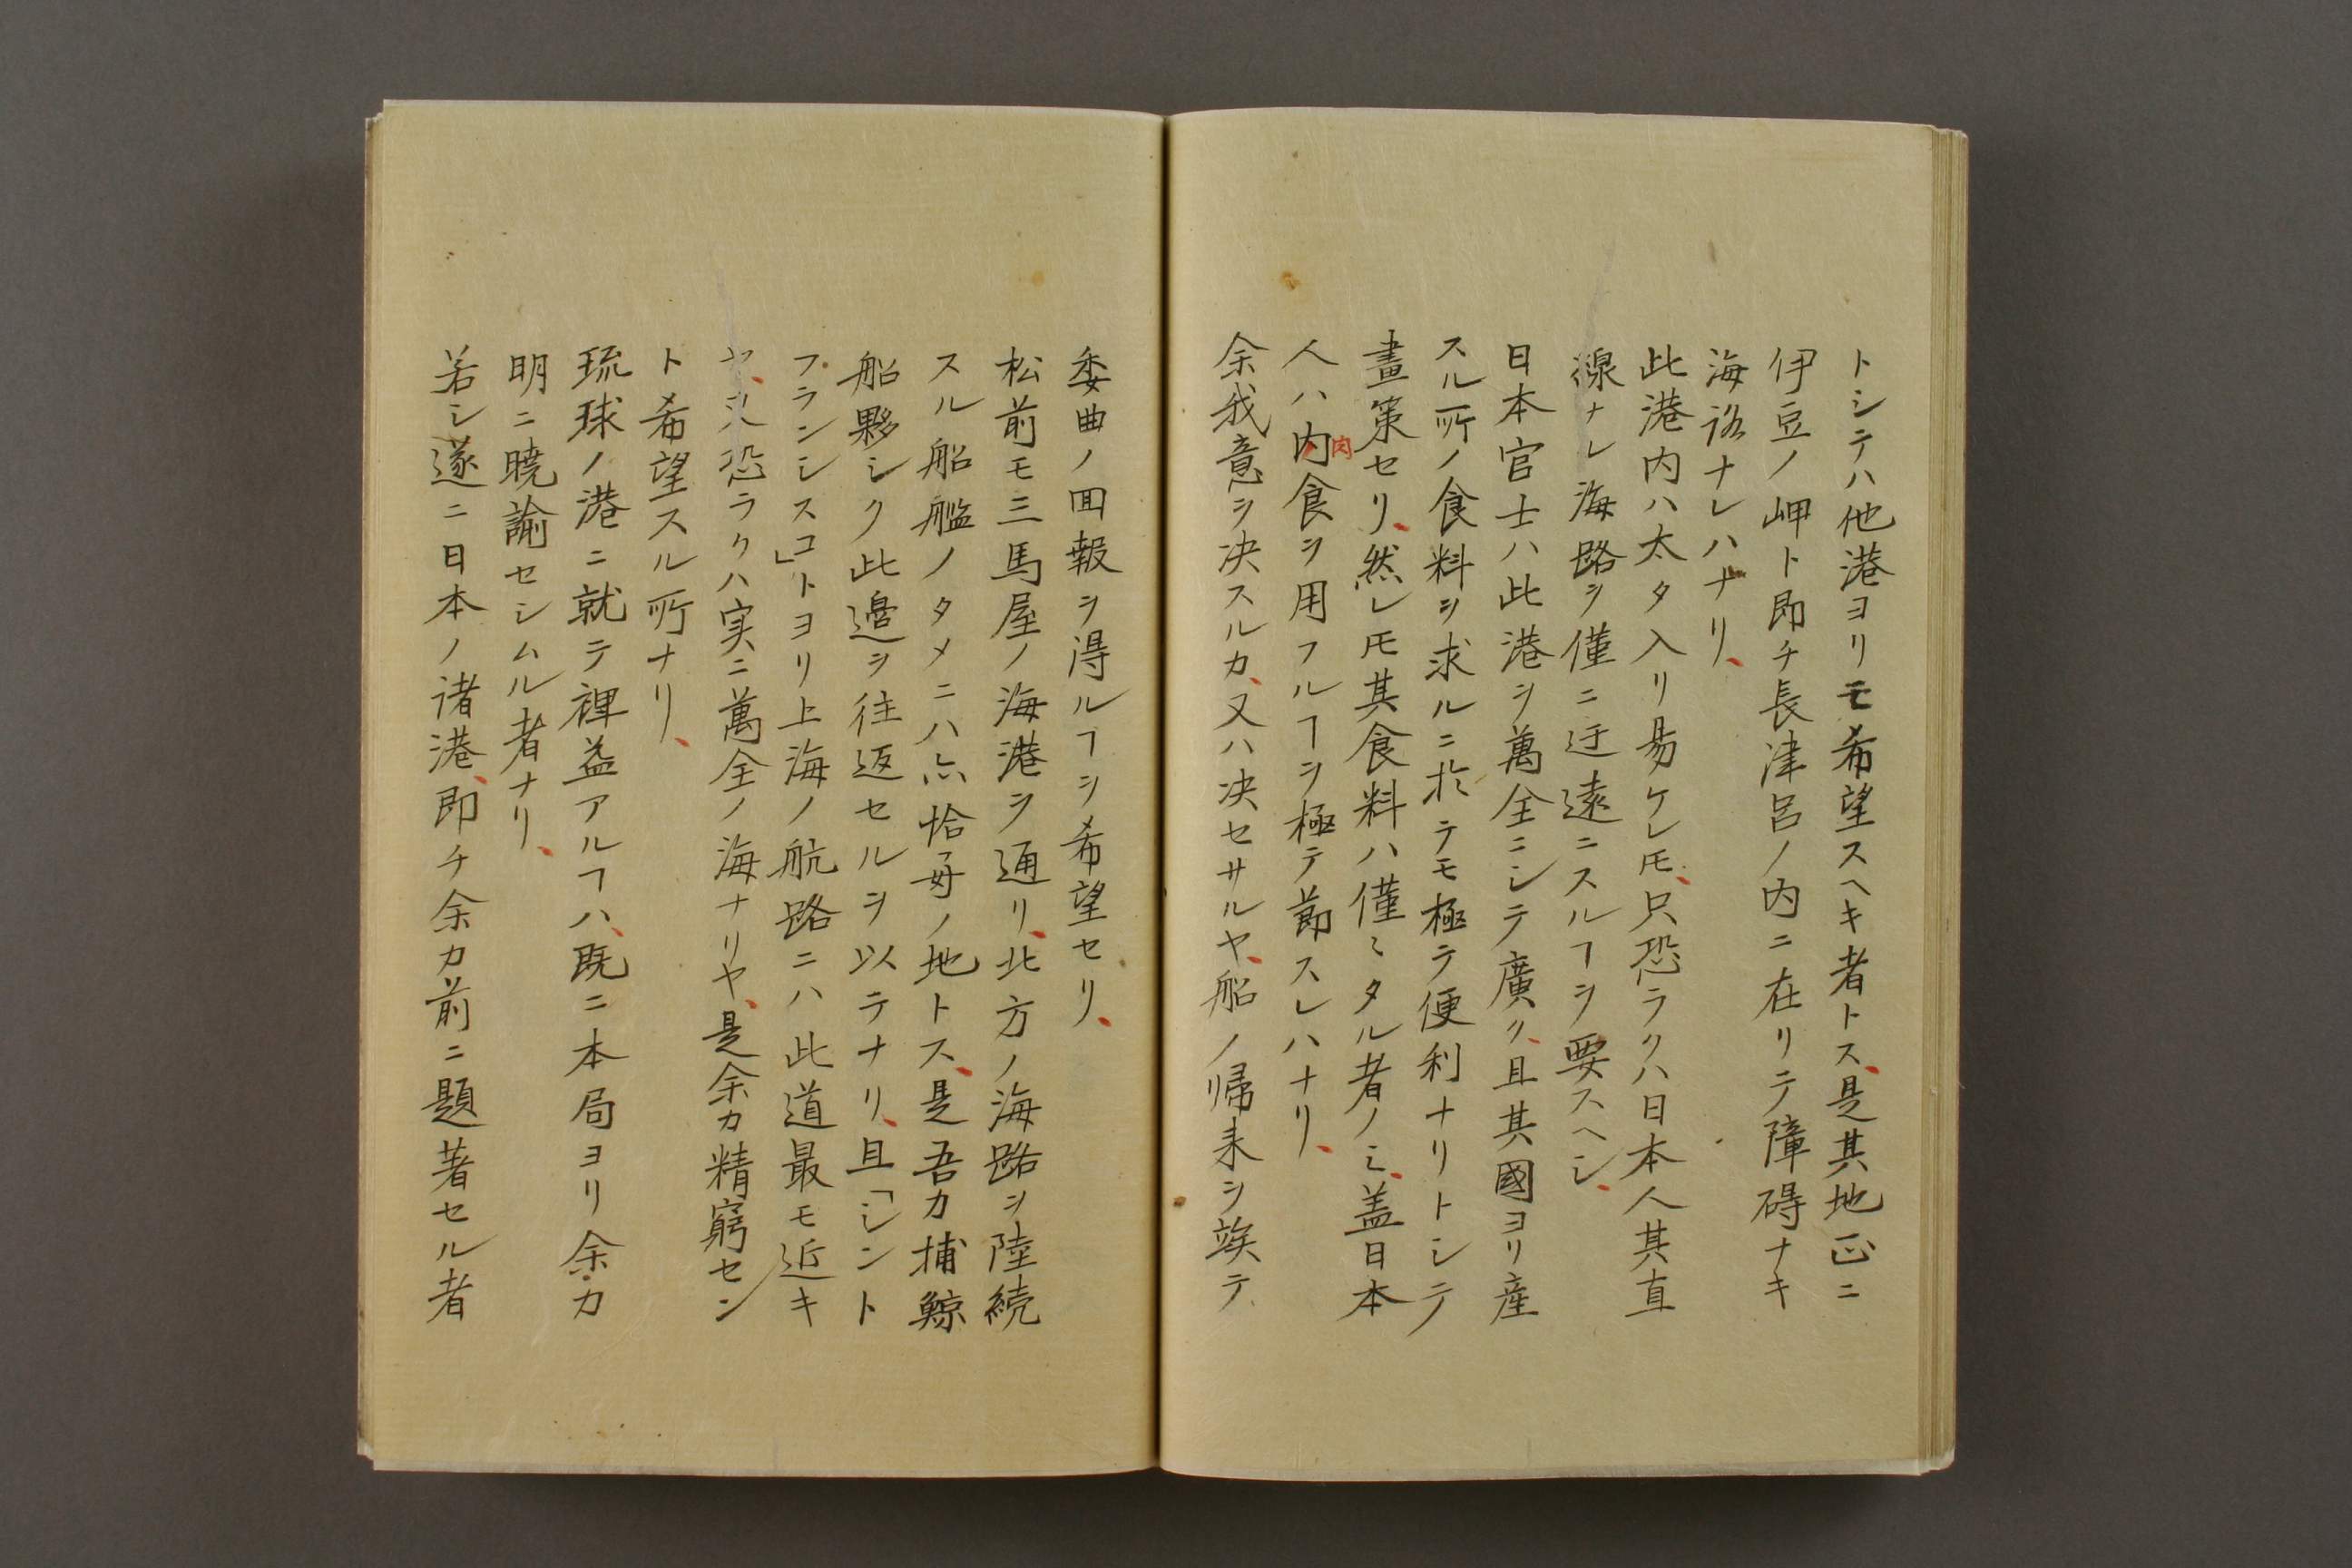 トシテハ他港ヨリモ希望スヘキ者トス、是其地正ニ
伊豆ノ岬ト即チ長津呂ノ内ニ在リテ障碍ナキ
海路ナレハナリ、
此港内ハ太タ入リ易ケレ𪜈、只恐ラクハ日本人其直
線ナレ海路ヲ僅ニ迂遠ニスルヿヲ要スヘシ、
日本官士ハ此港ヲ萬全ニシテ廣ク、且其國ヨリ産
スル所ノ食料ヲ求ルニ於テモ極テ便利ナリトシテ
畫策セリ、然レ𪜈其食料ハ僅ミタル者ノミ、盖日本
人ハ内食ヲ用フルヿヲ極テ節スレハナリ、
肉
余我意ヲ决スルカ、又ハ决セサルヤ、船ノ帰来ヲ竢テ
委曲ノ回報ヲ得ルヿヲ希望セリ、
松前モ三馬屋ノ海港ヲ通リ、北方ノ海路ヲ陸続
スル船艦ノタメニハ亦恰好ノ地トス、是吾カ捕鯨
船夥シク此邉ヲ往返セルヲ以テナリ、且「シント
フランシスコ」トヨリ上海ノ航路ニハ此道最モ近キ
ヤ、又恐ラクハ実ニ萬全ノ海ナリヤ、是余カ精窮セン
ト希望スル所ナリ、
琉球ノ港ニ就テ裨益アルヿハ、既ニ本局ヨリ余カ
明ニ曉諭セシムル者ナリ、
若シ遂ニ日本ノ诸港、即チ余カ前ニ題著セル者